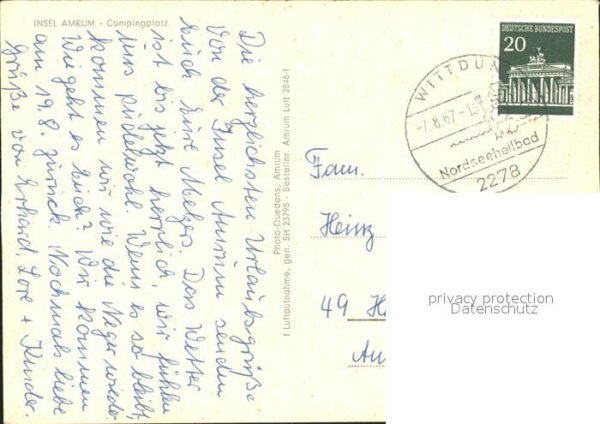 INSEL AMRUM - Campingplatz
Die herzlichsten Urlaubsgrüße
von der Insel Amrum senden
Euch Eure Nielges. Das Wetter
ist bis jetzt herrlich, wir fühlen
uns pudelwohl. Wenn es so bleibt,
kommen wir wie die Neger wieder.
Wie geht es Euch? Wir kommen
am 19.8. zurück. Nochmals liebe
Grüße von Erhard, Lore + Kinder.
Photo-Quedens, Amrum
Luftaufnahme, gen. SH 25798 - Bestellnr. Amrum Luft 2846-1
DEUTSCHE BUNDESPOST
20
WITTDÜN
-7.8.67-
Nordseeheilbad
2278
Fam.
Heinz
49 H
Au
privacy protection
Datenschutz